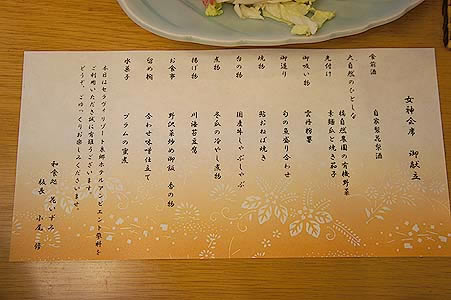 女神会席　御献立
食前酒　自家製花梨酒
大自然のひとしな
橘自然農園の有機野菜
先付け　素麺瓜と焼き茄子
御吸い物　雲丹粉養
御造り　旬の魚盛り合わせ
焼物　鮎おねば焼き
台の物　国産牛しゃぶしゃぶ
煮物　冬瓜の冷やし煮物
揚げ物　川海苔豆腐
お食事　野沢菜炒め御飯　香の物
留め椀　合わせ味噌仕立て
水菓子　プラムの蜜煮
本日はセラヴィリゾート泉郷ホテルアンビエント蓼科を
ご利用いただき誠に有難うございます。
どうぞ、ごゆっくりお楽しみくださいませ。
和食処　花いずみ
板長　小尾　修